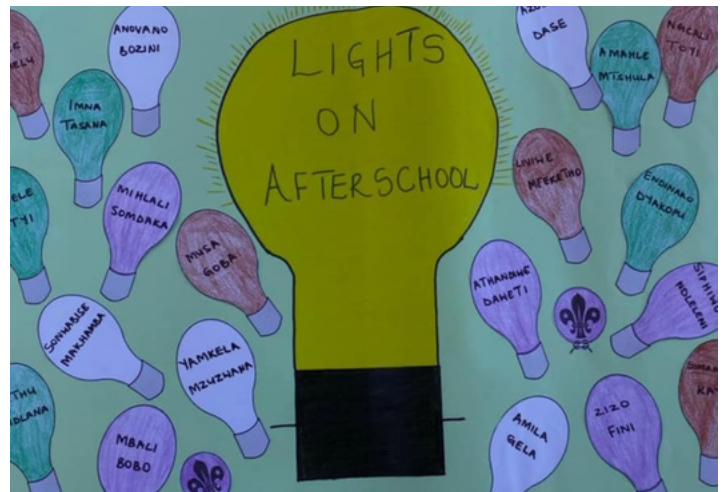 LIGHTS
ON
AFTERSCHOOL
ANOVANO
BOZINI
IMNA
TASANA
MIHLALI
SOMDAKA
MUSA
GOBA
SONWABISE
MAKHAMBA
YAMKELA
MZUZWANA
MBALI
BOBO
DASE
AMAHLE
MTSHULA
NGCALI
TOYI
LIVIWE
MFEKETHO
ENDINAKO
DYAKOPU
ATHANDIWE
DAWETI
NDLELENI
ZIZO
FINI
AMILA
GELA